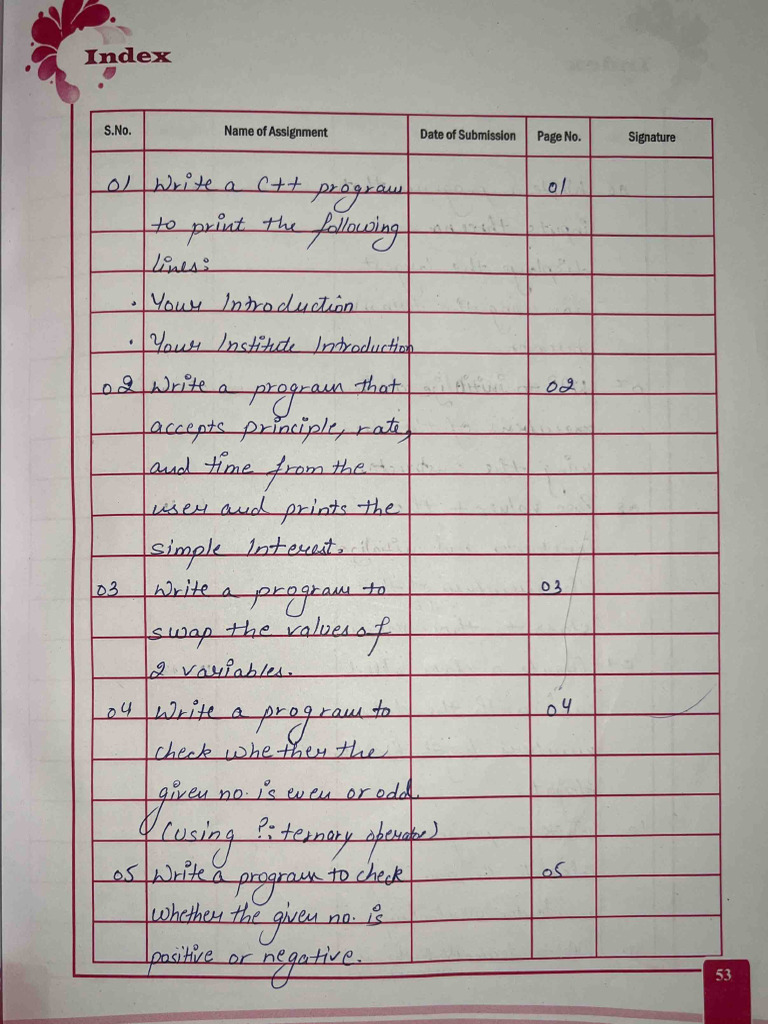 Index
S.No. Name of Assignment Date of Submission Page No. Signature
01 Write a C++ program 01
to print the following
lines:
· Your Introduction
· Your Institute Introduction
02 Write a program that 02
accepts principle, rate,
and time from the
user and prints the
simple Interest.
03 Write a program to 03
swap the values of
2 variables.
04 Write a program to 04
check whether the
given no. is even or odd.
(using ?: ternary operator)
05 Write a program to check 05
whether the given no. is
positive or negative.
53